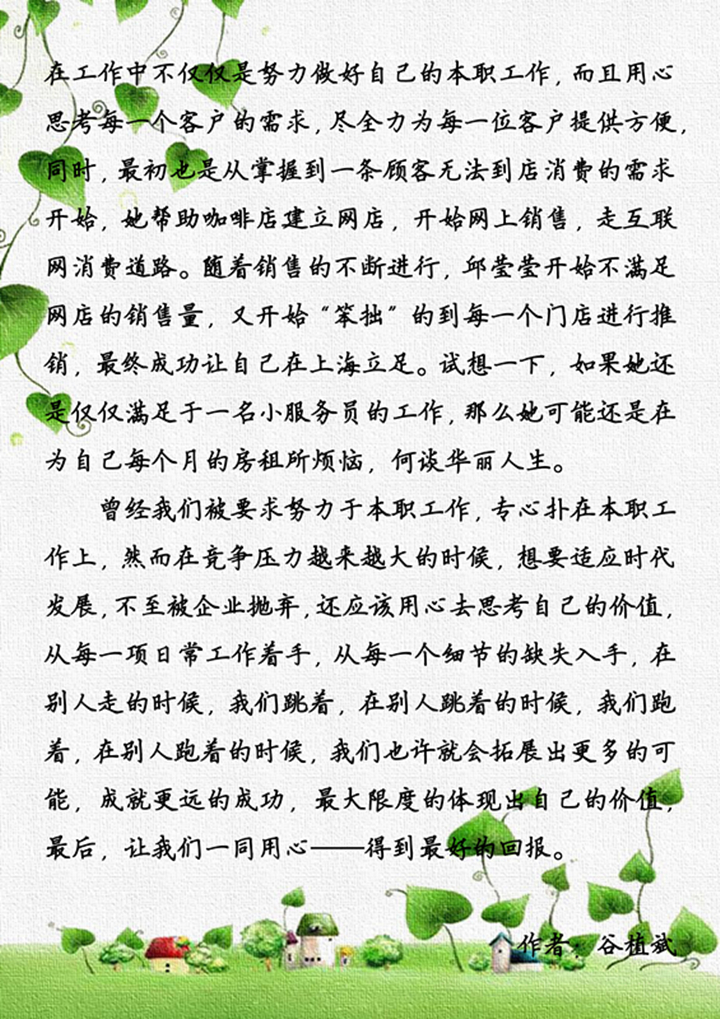 在工作中不仅仅是努力做好自己的本职工作，而且用心
思考每一个客户的需求，尽全力为每一位客户提供方便，
同时，最初也是从掌握到一条顾客无法到店消费的需求
开始，她帮助咖啡店建立网店，开始网上销售，走互联
网消费道路。随着销售的不断进行，邱莹莹开始不满足
网店的销售量，又开始“笨拙”的到每一个门店进行推
销，最终成功让自己在上海立足。试想一下，如果她还
是仅仅满足于一名小服务员的工作，那么她可能还是在
为自己每个月的房租所烦恼，何谈华丽人生。
曾经我们被要求努力于本职工作，专心扑在本职工
作上，然而在竞争压力越来越大的时候，想要适应时代
发展，不至被企业抛弃，还应该用心去思考自己的价值，
从每一项日常工作着手，从每一个细节的缺失入手，在
别人走的时候，我们跳着，在别人跳着的时候，我们跑
着，在别人跑着的时候，我们也许就会拓展出更多的可
能，成就更远的成功，最大限度的体现出自己的价值，
最后，让我们一同用心——得到最好的回报。
作者：谷植斌